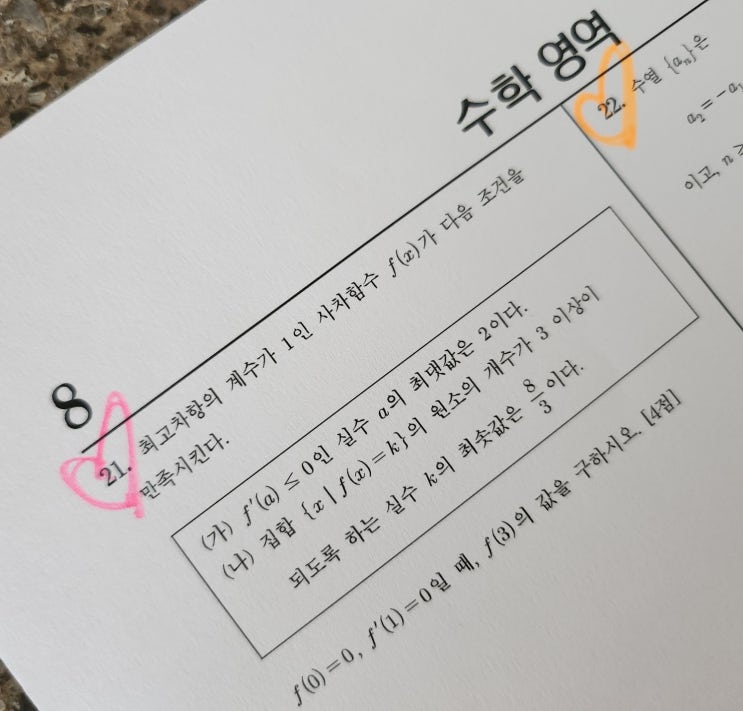 8
수학 영역
21. 최고차항의 계수가 1인 사차함수 f(x)가 다음 조건을
만족시킨다.
(가) f'(a) ≤ 0인 실수 a의 최댓값은 2이다.
(나) 집합 {x | f(x) = k}의 원소의 개수가 3 이상이
되도록 하는 실수 k의 최솟값은 8/3이다.
f(0) = 0, f'(1) = 0일 때, f(3)의 값을 구하시오. [4점]
22. 수열 {aₙ}은
a₂ = -a₁
이고, n ≥